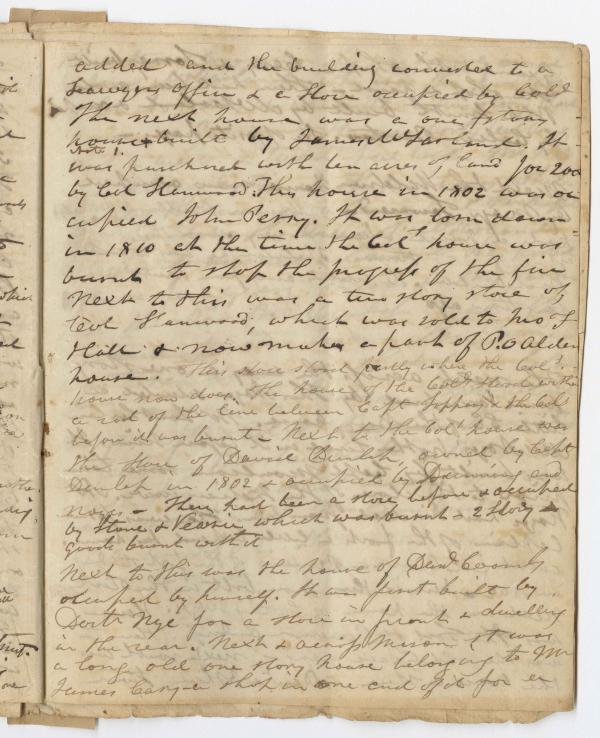 added and the building converted to a
Lawyers office & a Store occupied by Col.
The next house was a one story
house built by James McFarland. It
Note 1.
was purchased with ten acres of land for 200
by Col Stanwood. This house in 1802 was oc
cupied John Perry. It was torn down
in 1810 at the time the Col.s house was
burnt to stop the progress of the fire
Next to this was a two story store of
Col Stanwood, which was sold to
Hall & now makes a part of P. O Alden
house. This store stood partly where the Col.s
house now does. The house of the Col.s stood within
a rod of the line between Capt & the Col.s
before it was burnt - Next to the Col.s house was
the store of David Dunlap, owned by Capt
Dunlap in 1802 & occupied by Dunning and
Noyes - There had been a store before & occupied
by Stone & Veazie which was burnt - 2 Story -
goods burnt with it
Next to this was the house of Coombs
occupied by himself. It was first built by
Nye for a store in front & dwelling
in the rear. Next & across It was
a long old one story house belonging to Mr
James Cary - a shop in one end of it for a